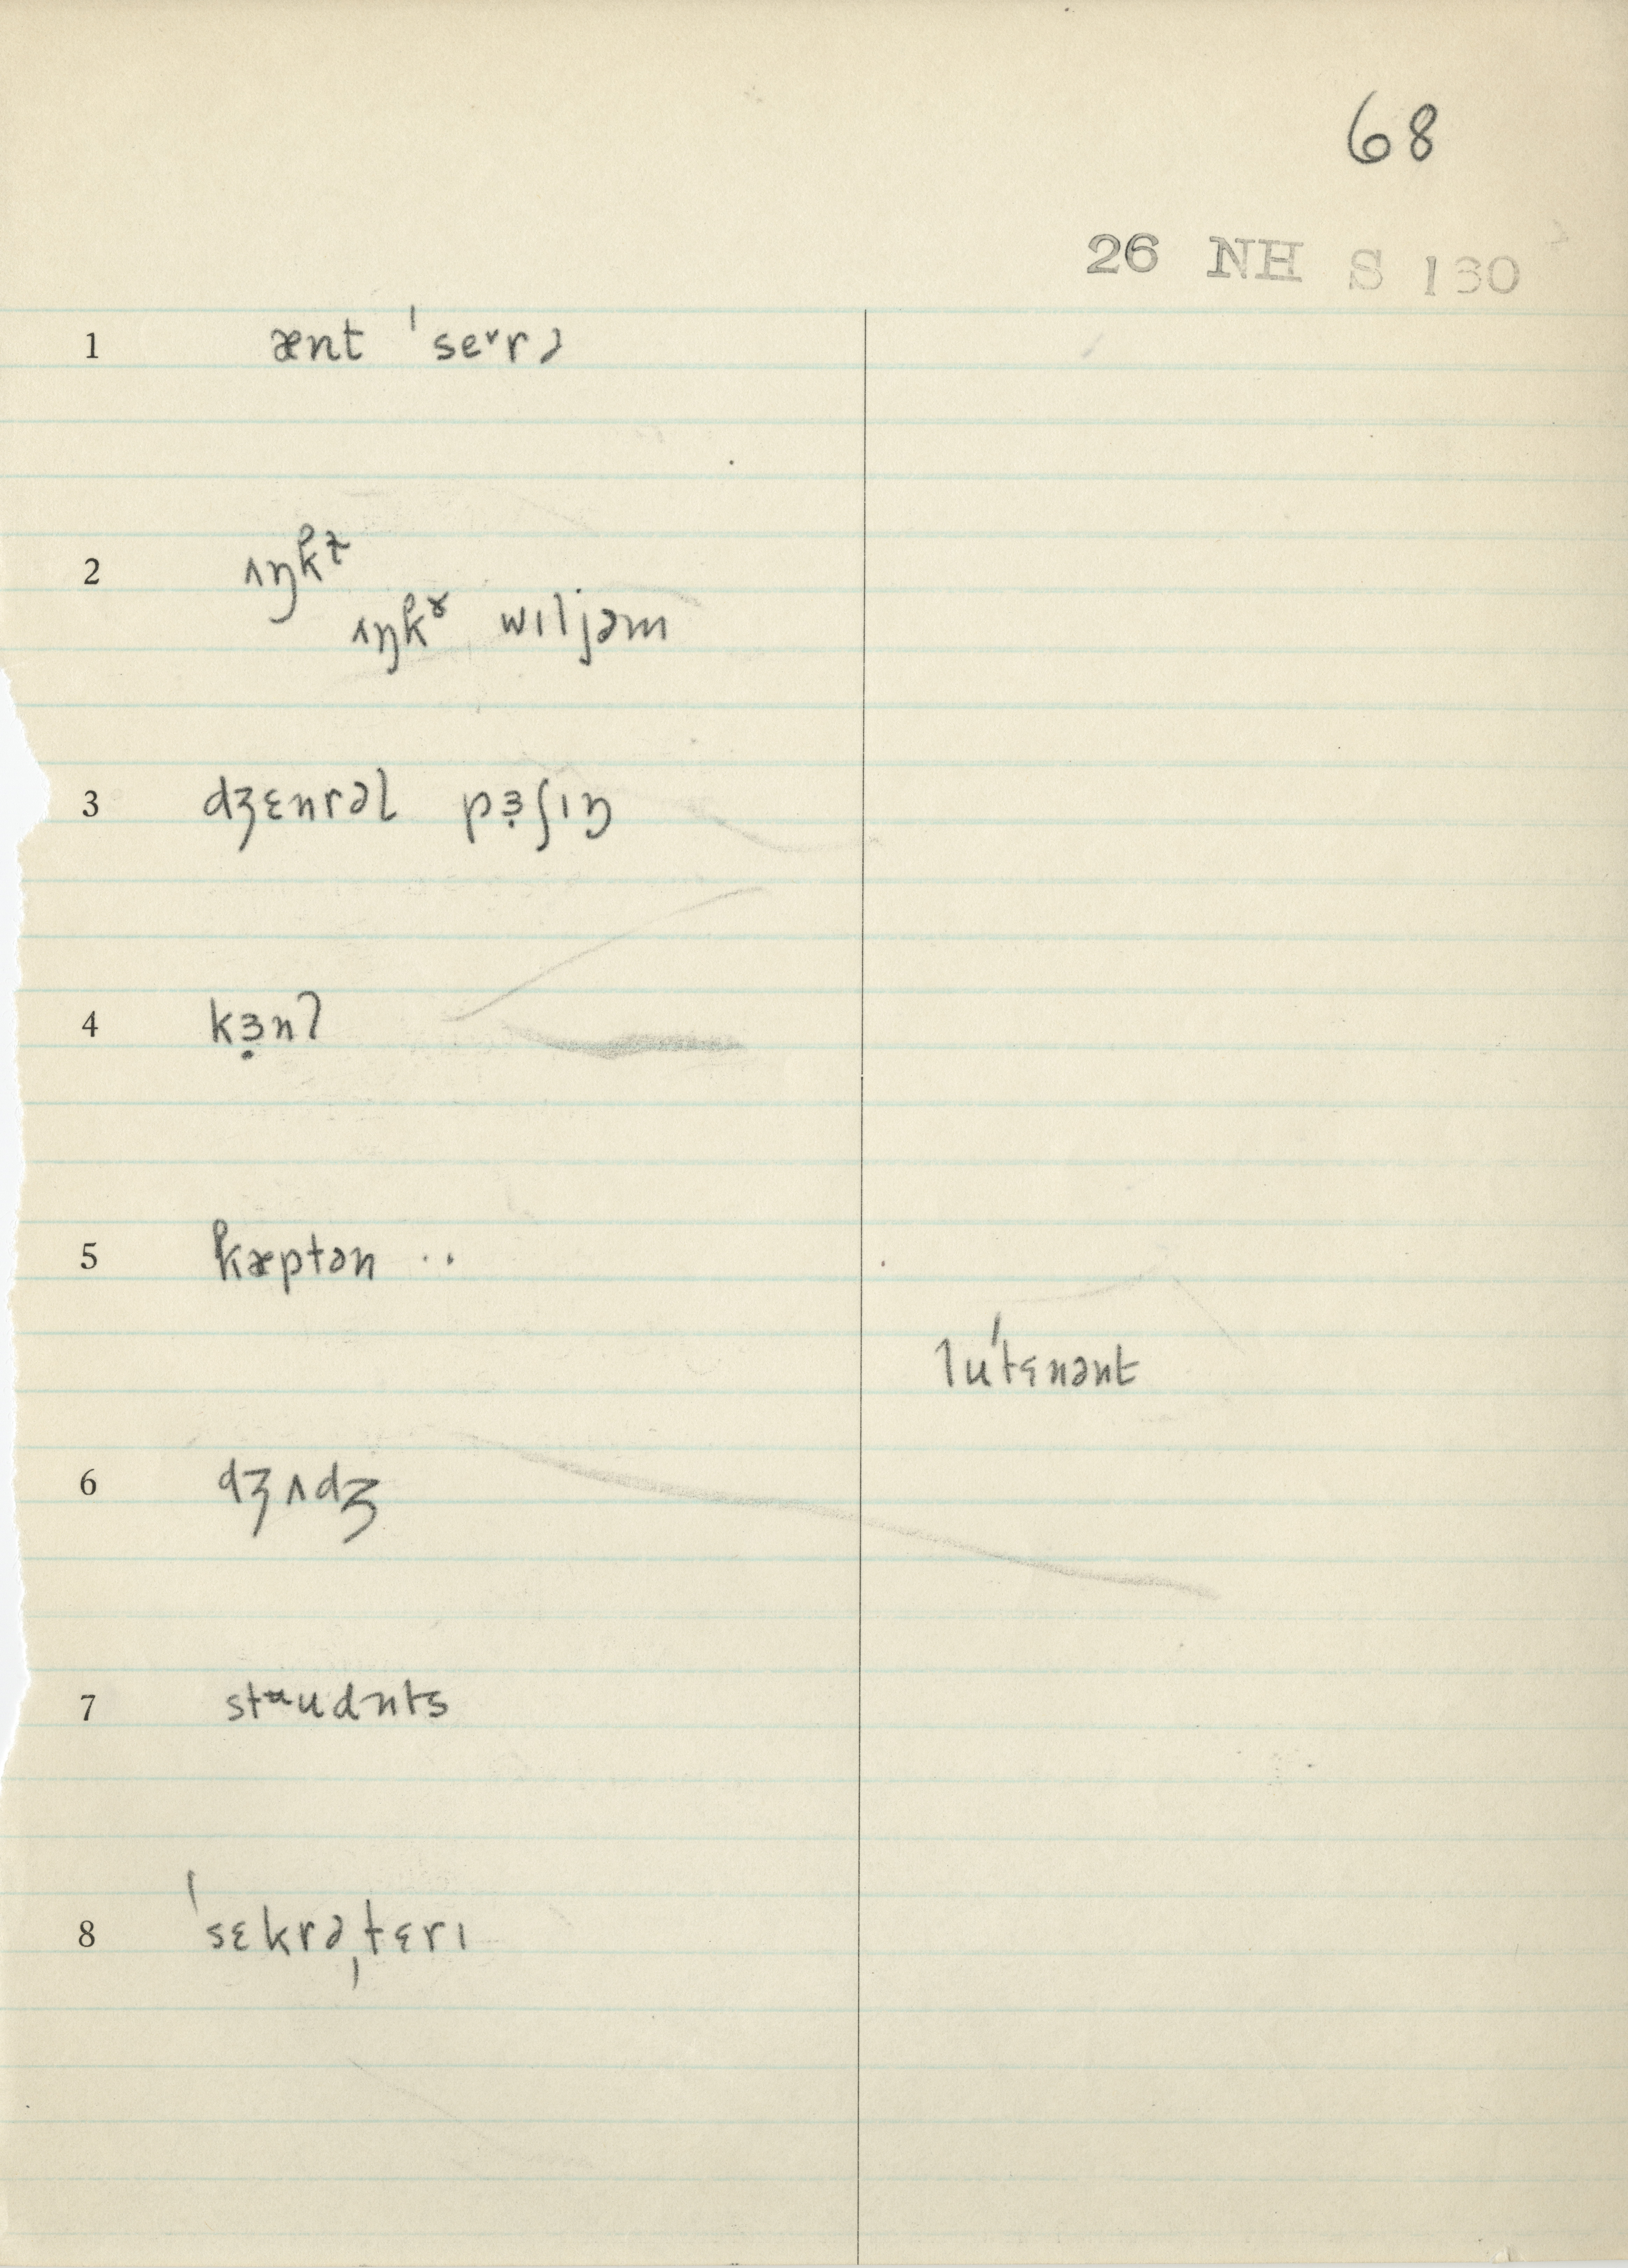 68
26 NH S 130
1 ænt ˈseᵛrə
2 ʌŋkɫ
ʌŋkɤ wɪljəm
3 dʒɛnrəl pɜ̣ʃɪŋ
4 kɜ̣nl
5 kæptən ··
luˈtɛnənt
6 dʒʌdʒ
7 stᵚudnts
8 ˈsɛkrəˌtɛrɪ